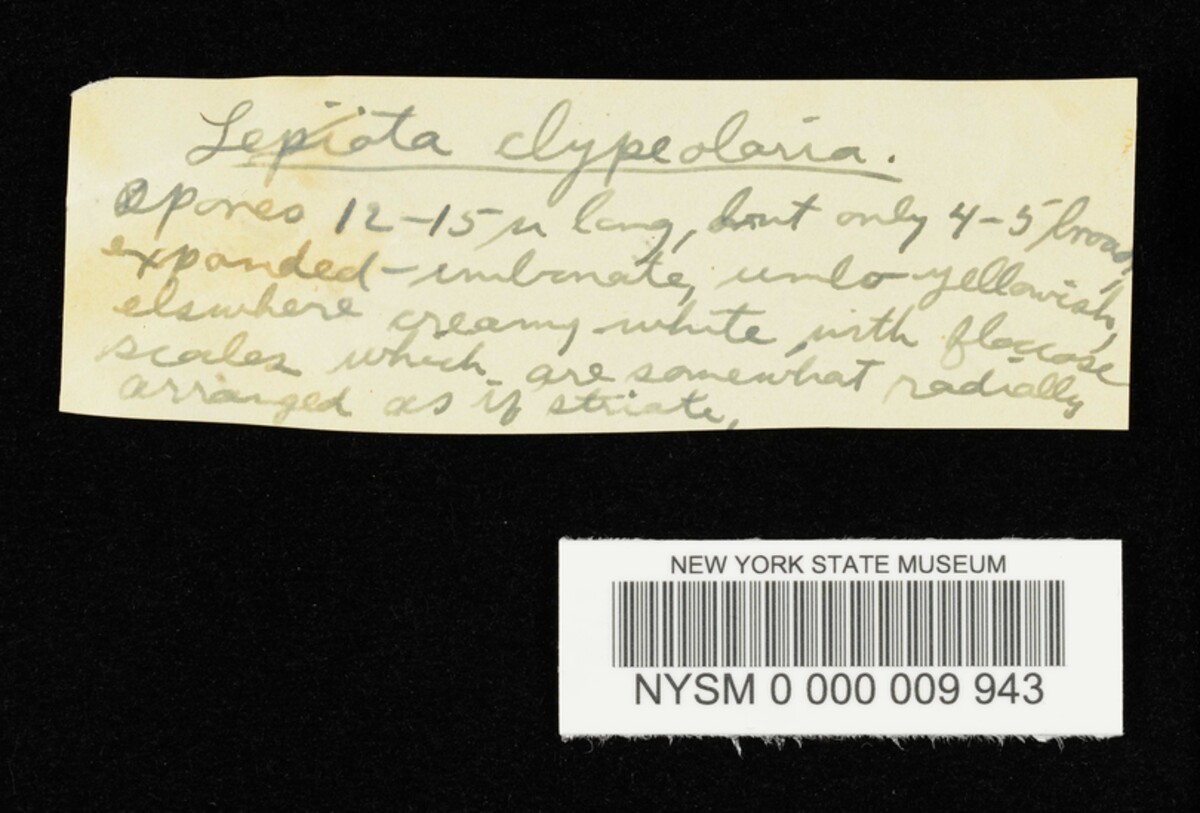 Lepiota clypeolaria.
spores 12-15 µ long, but only 4-5 broad,
expanded-umbonate, umbo yellowish,
elswhere creamy-white, with floccose
scales which are somewhat radially
arranged as if striate,
NEW YORK STATE MUSEUM
NYSM 0 000 009 943